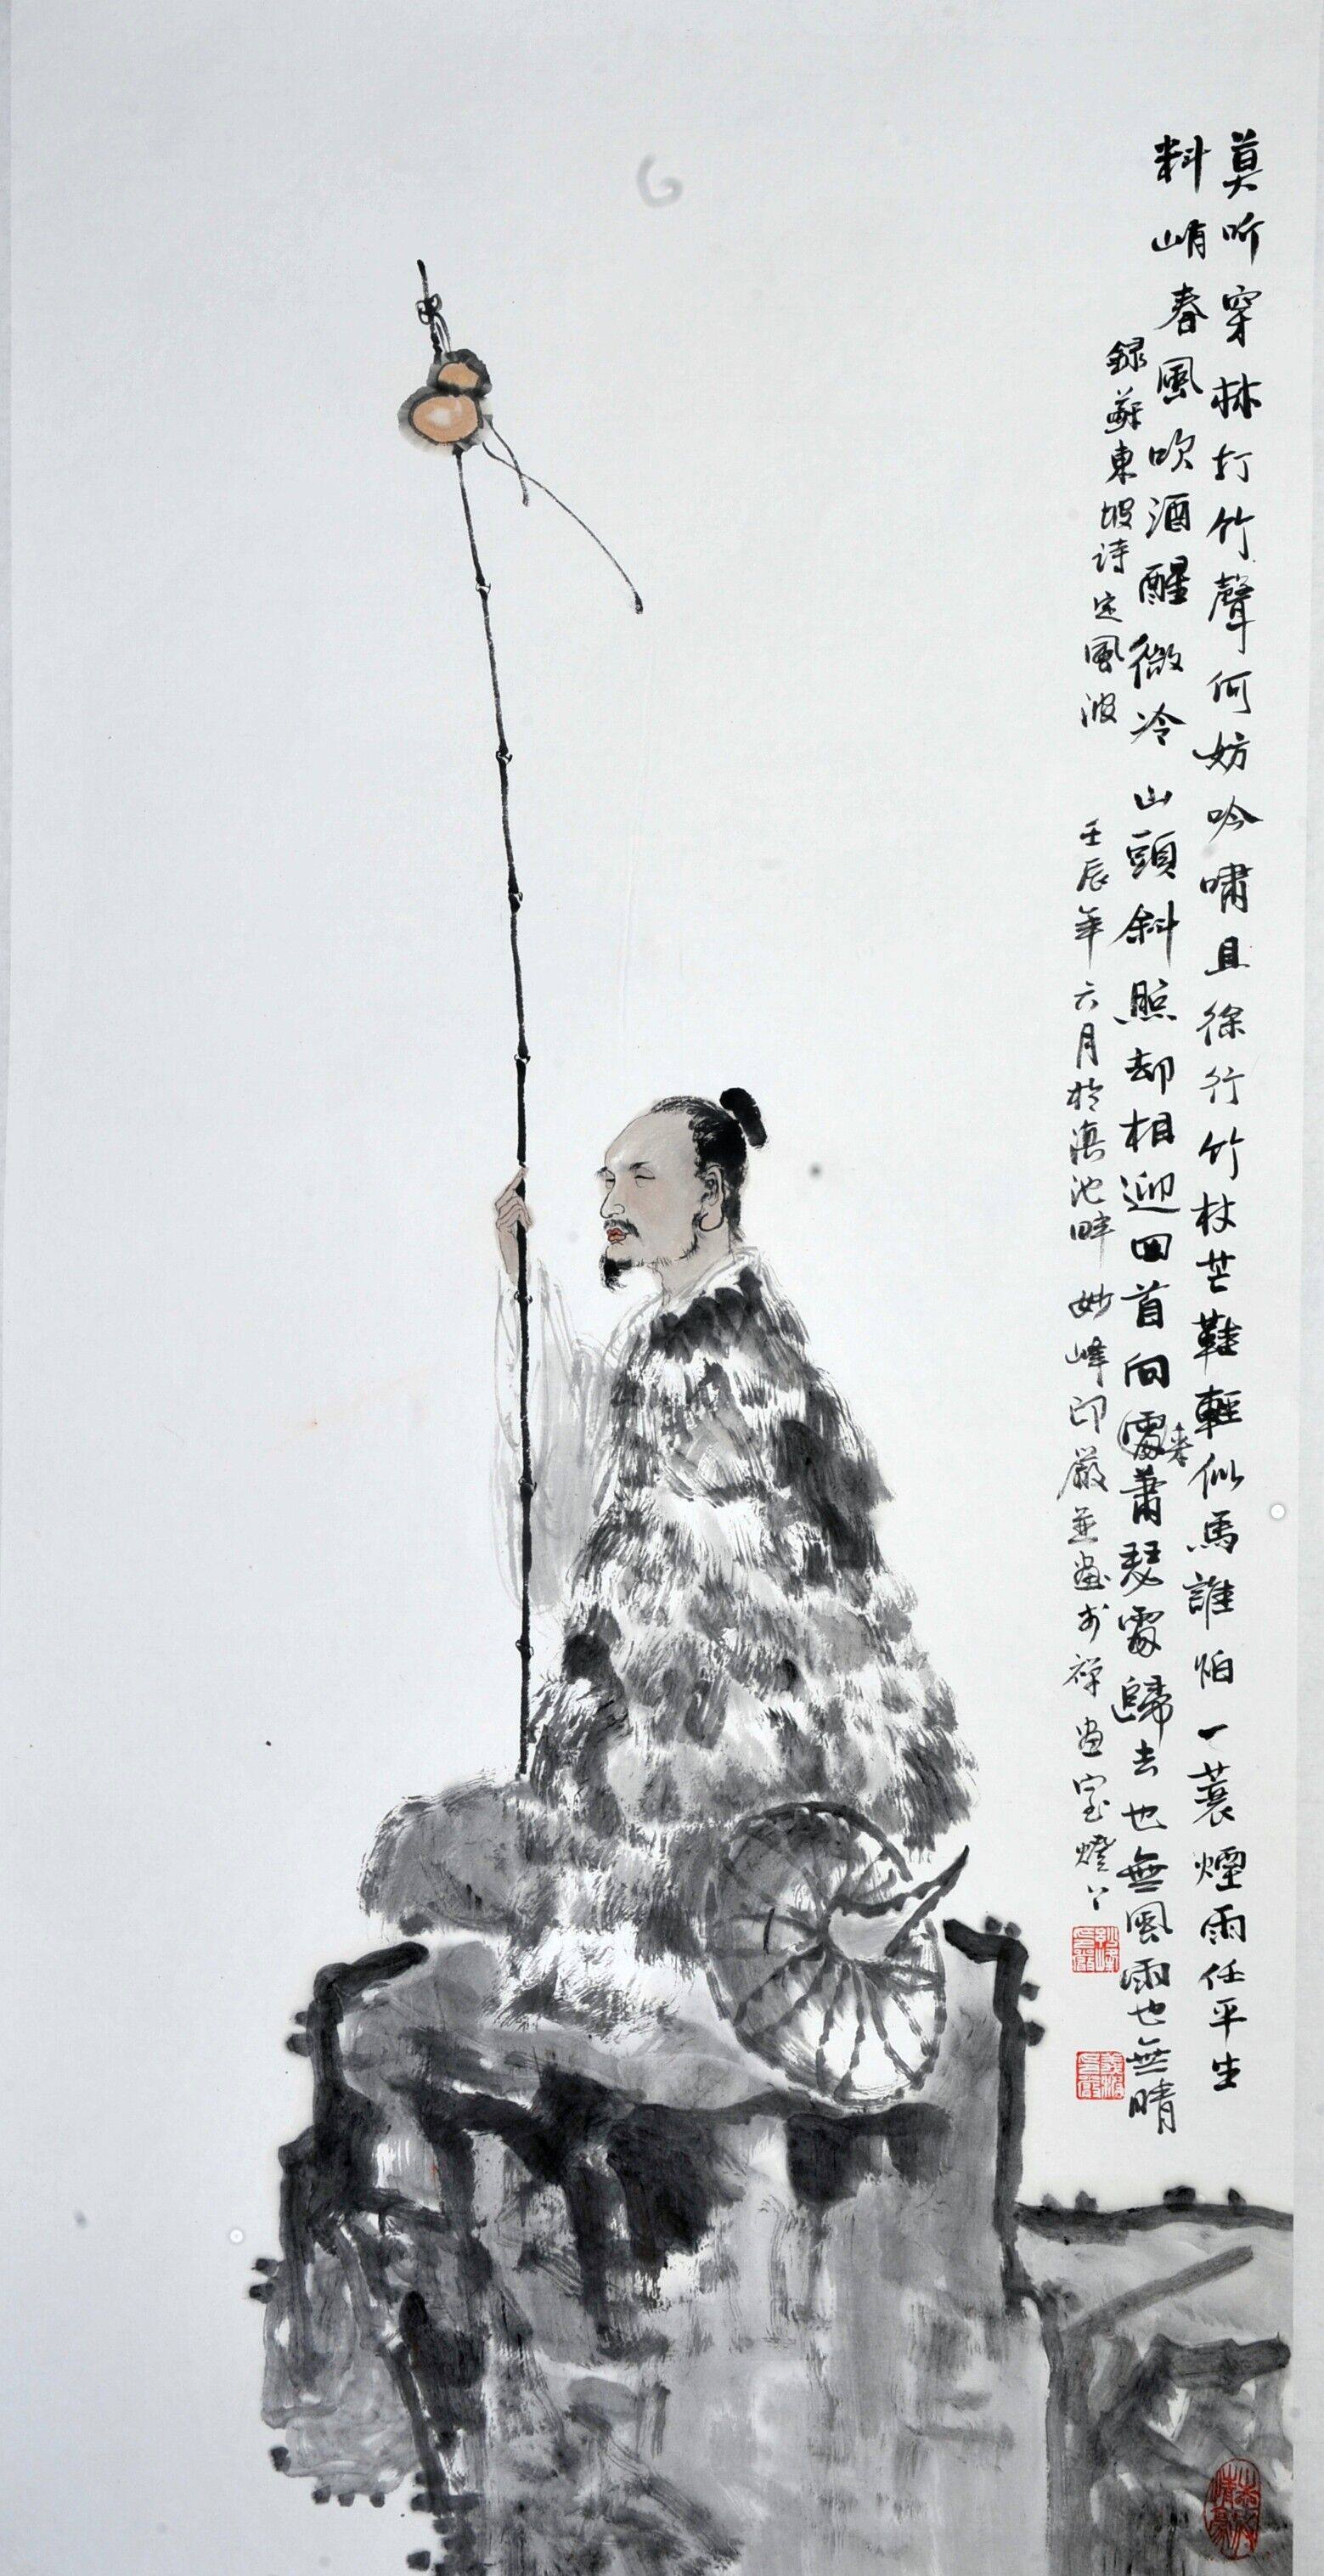 莫听穿林打竹聲何妨吟嘯且徐行竹杖芒鞋輕似馬誰怕一蓑煙雨任平生
料峭春風吹酒醒微冷山頭斜照却相迎回首向來蕭瑟處歸去也無風雨也無晴
録蘇東坡诗定風波
壬辰年六月於滇池畔妙峰印嚴並畫於禅画室燈下
妙峰
印嚴